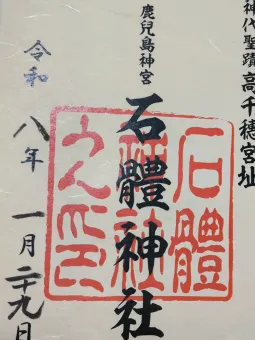 神代聖蹟高千穂宮址
鹿兒島神宮
石體神社
石體神社之印
令和八年一月二十九日